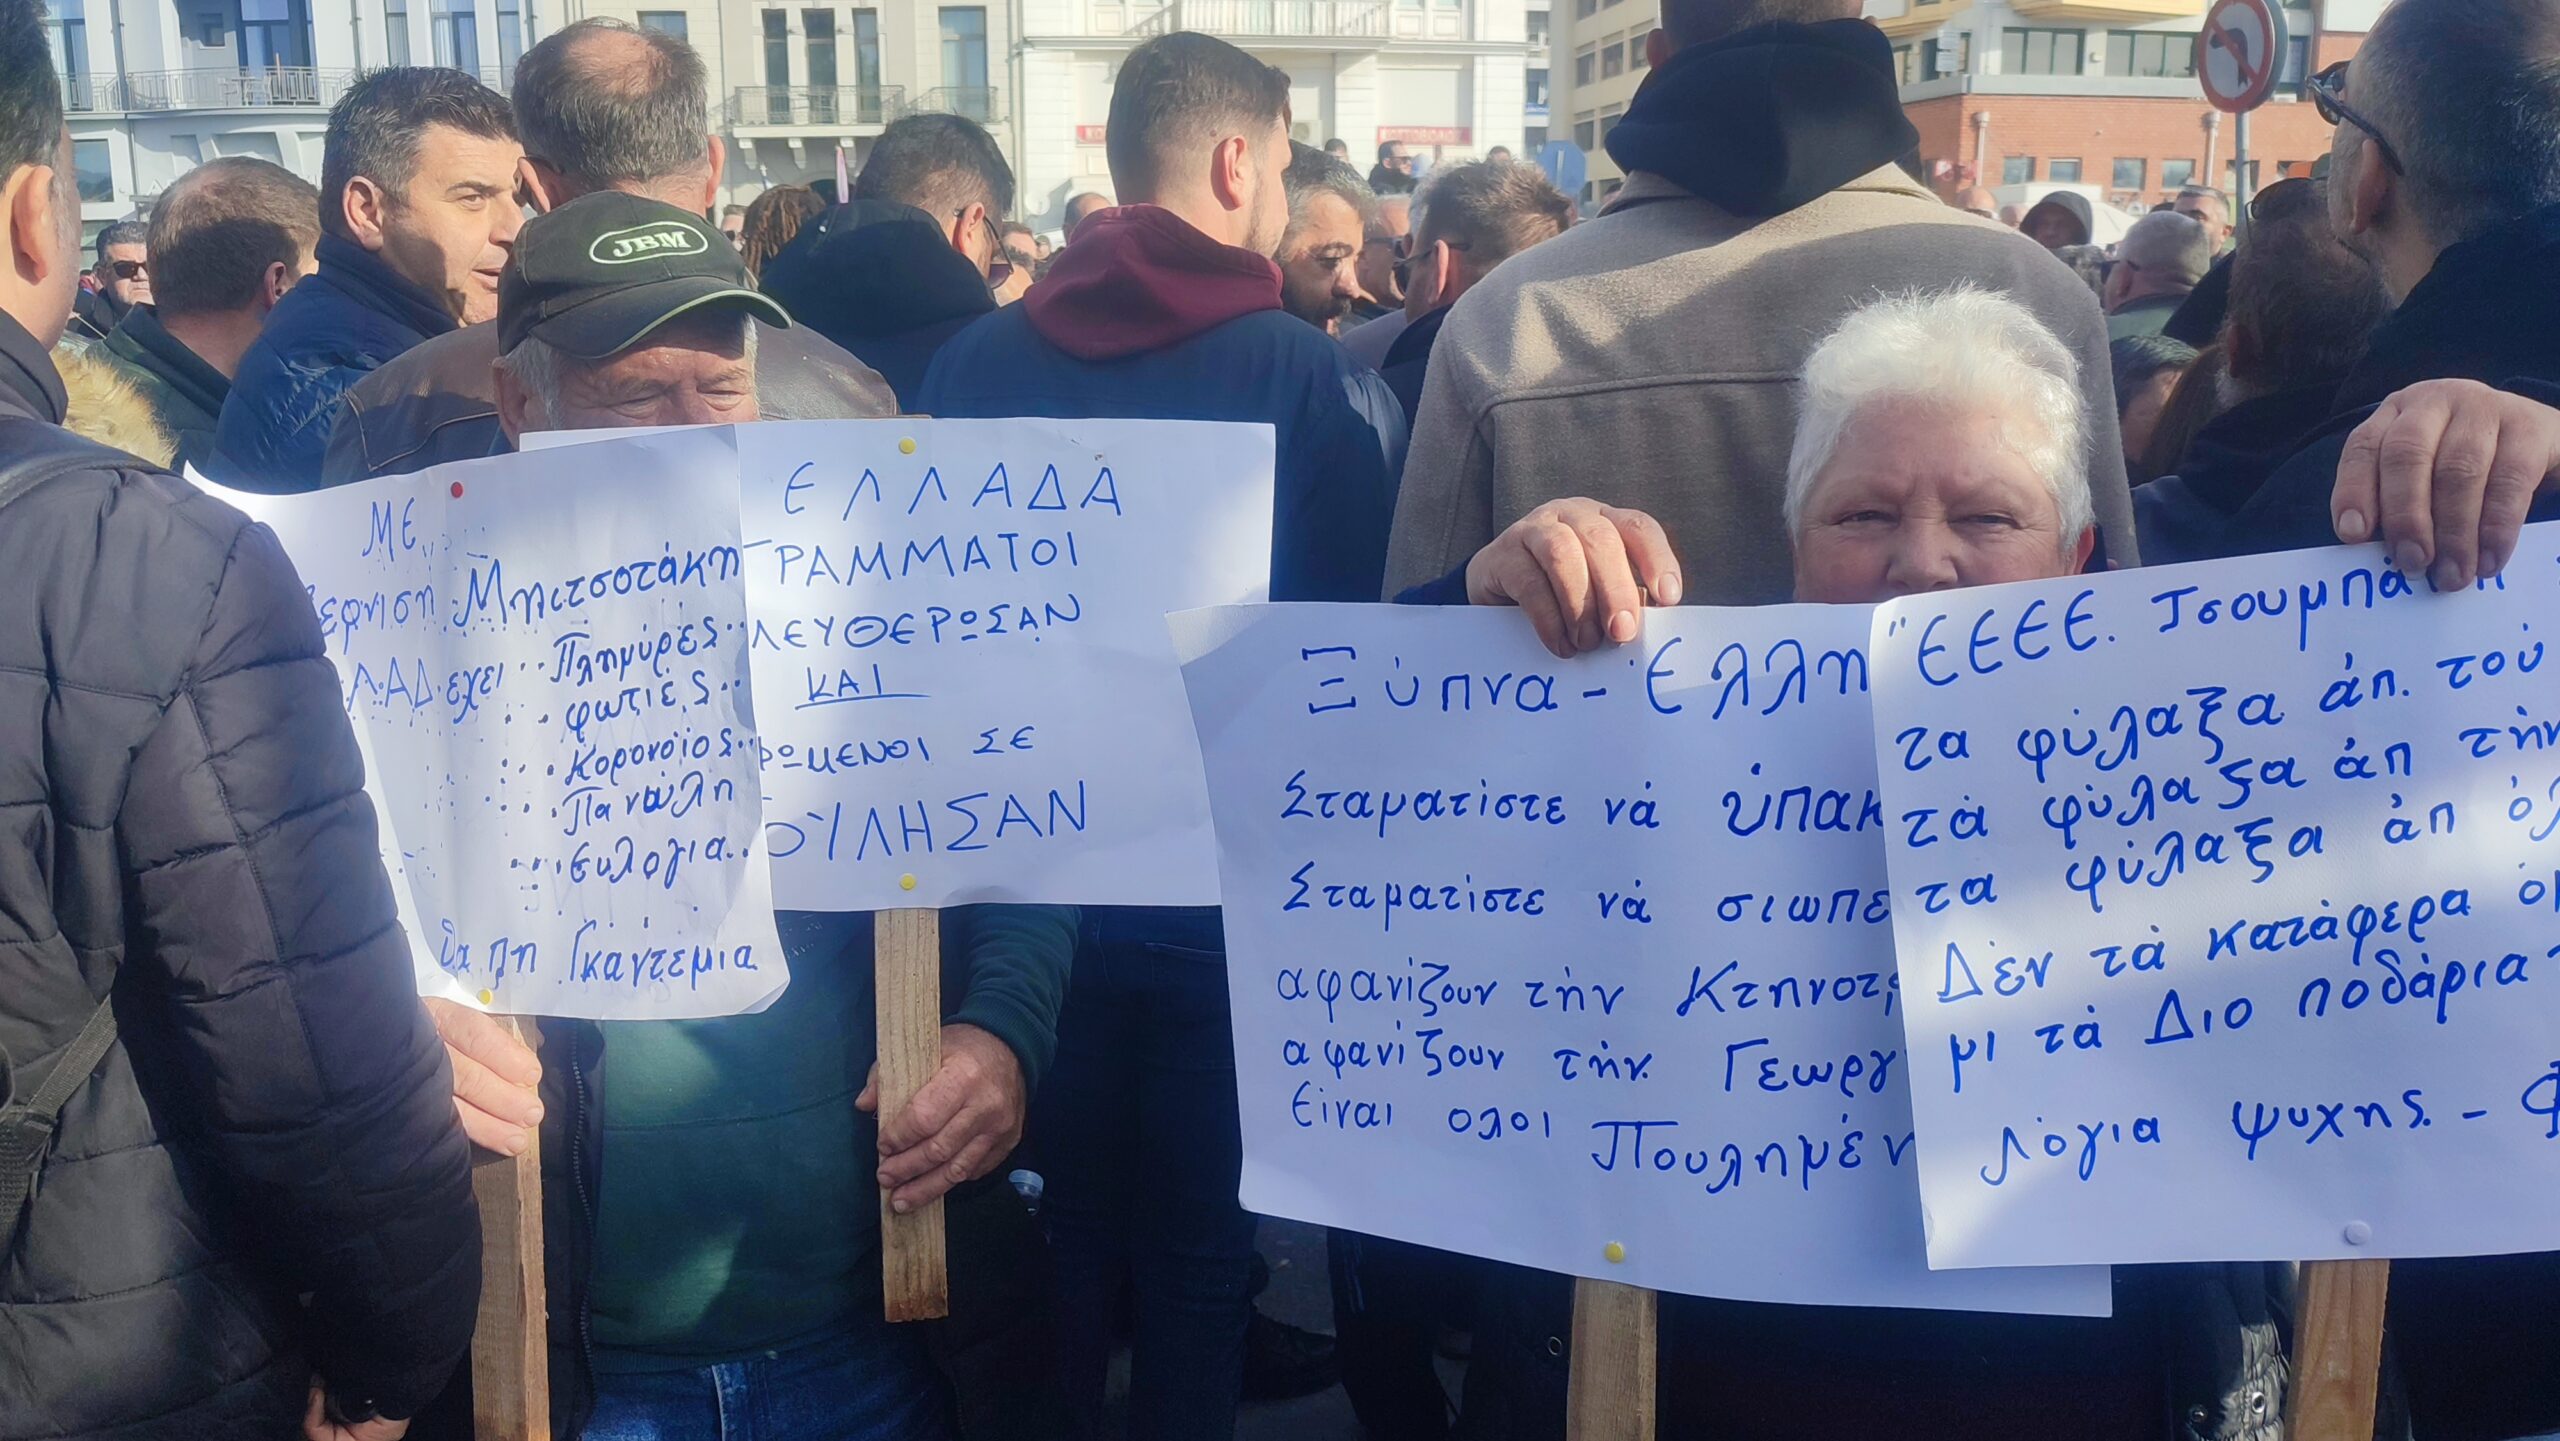 JBM
ΜΕ
Μητσοτάκη
ΕΧΕΙ Πλημύρες
φωτιές
Κορονοϊος
Πανώλη
Ευλογια
Γκαντεμια
ΕΛΛΑΔΑ
ΓΡΑΜΜΑΤΟΙ
ΛΕΥΘΕΡΩΣΑΝ
ΚΑΙ
ΣΕ
ΟΥΛΗΣΑΝ
Ξύπνα - Ελλη
Σταματίστε νά ὑπακ
Σταματίστε νά σιωπε
αφανίζουν τήν Κτηνοτ
αφανίζουν τήν Γεωργ
Είναι ολοι Πουλημέν
"ΕΕΕΕ. Τσουμπά
τα φύλαξα άπ. τού
τά φύλαξα άπ τήν
τα φύλαξα άπ όλ
Δέν τά κατάφερα
μι τά Διο ποδάρια
Λόγια ψυχης -